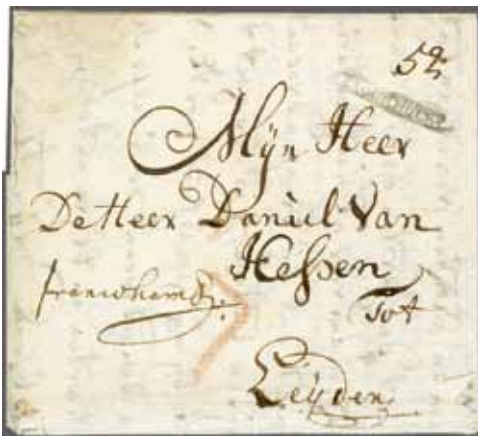 52
Mÿn Heer
De Heer Daniel Van
Hessen
franco hamb:
Tot
Leÿden